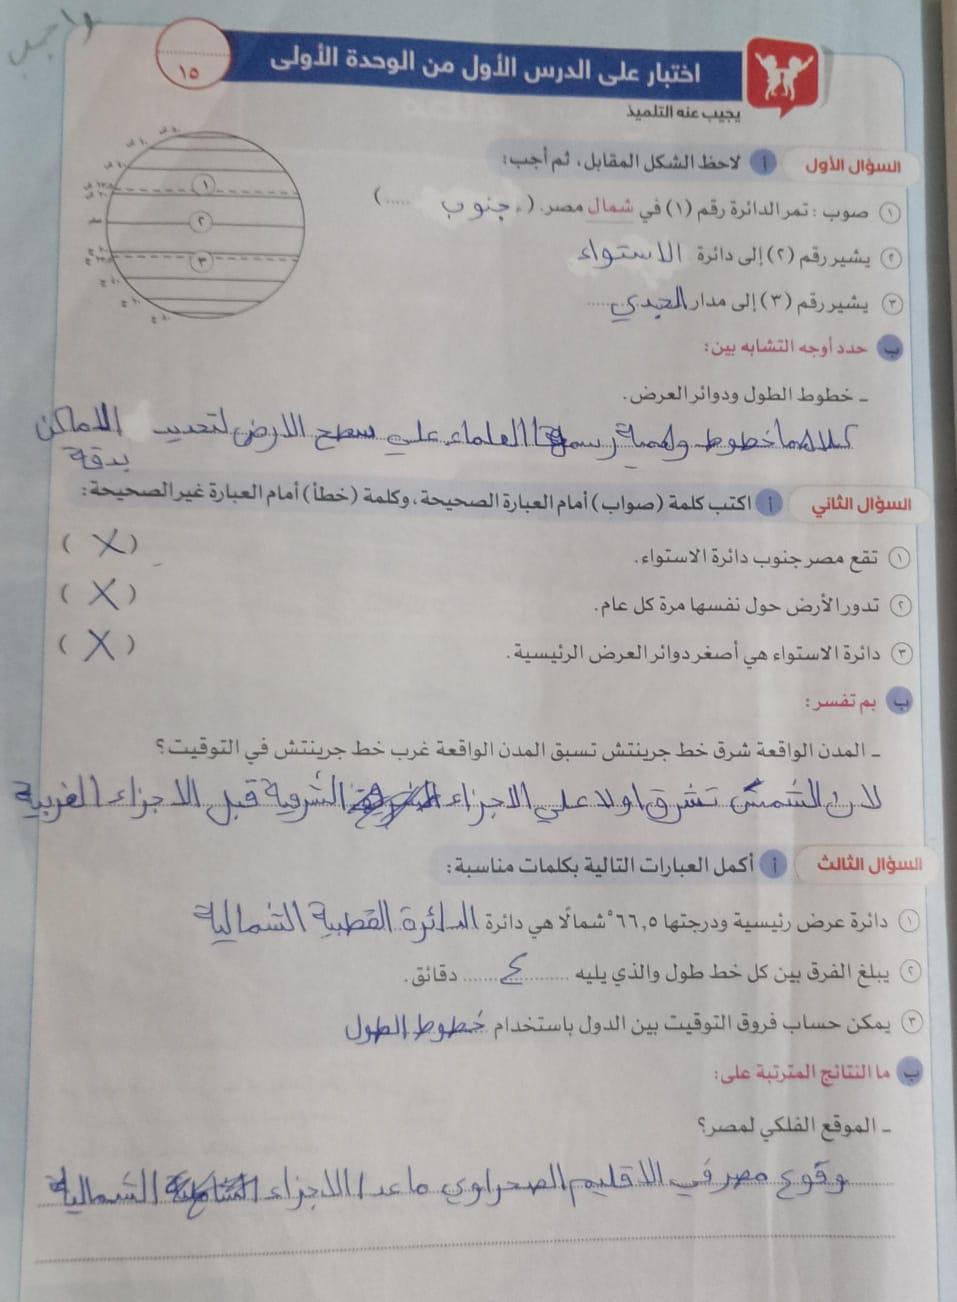 واجب
اختبار على الدرس الأول من الوحدة الأولى
١٥
يجيب عنه التلميذ
السؤال الأول أ لاحظ الشكل المقابل، ثم أجب:
١ صوب : تمر الدائرة رقم (١) في شمال مصر. ( جنوب ..... )
٢ يشير رقم (٢) إلى دائرة الاستواء
٣ يشير رقم (٣) إلى مدار الجدي .....
١
٢
٣
ب حدد أوجه التشابه بين:
ـ خطوط الطول ودوائر العرض.
كلاهما خطوط وهمية رسمها العلماء علي سطح الارض لتحديد الاماكن
بدقة
السؤال الثاني أ اكتب كلمة (صواب) أمام العبارة الصحيحة، وكلمة (خطأ) أمام العبارة غير الصحيحة:
١ تقع مصر جنوب دائرة الاستواء. ( X )
٢ تدور الأرض حول نفسها مرة كل عام. ( X )
٣ دائرة الاستواء هي أصغر دوائر العرض الرئيسية. ( X )
ب بم تفسر:
ـ المدن الواقعة شرق خط جرينتش تسبق المدن الواقعة غرب خط جرينتش في التوقيت؟
لان الشمس تشرق اولا علي الاجزاء الشرقية قبل الاجزاء الغربية
السؤال الثالث أ أكمل العبارات التالية بكلمات مناسبة:
١ دائرة عرض رئيسية ودرجتها ٦٦,٥° شمالًا هي دائرة الدائرة القطبية الشمالية
٢ يبلغ الفرق بين كل خط طول والذي يليه ......... ٤ ......... دقائق.
٣ يمكن حساب فروق التوقيت بين الدول باستخدام خطوط الطول
ب ما النتائج المترتبة على:
ـ الموقع الفلكي لمصر؟
وقوع مصر في الاقليم الصحراوي ماعدا الاجزاء الشمالية